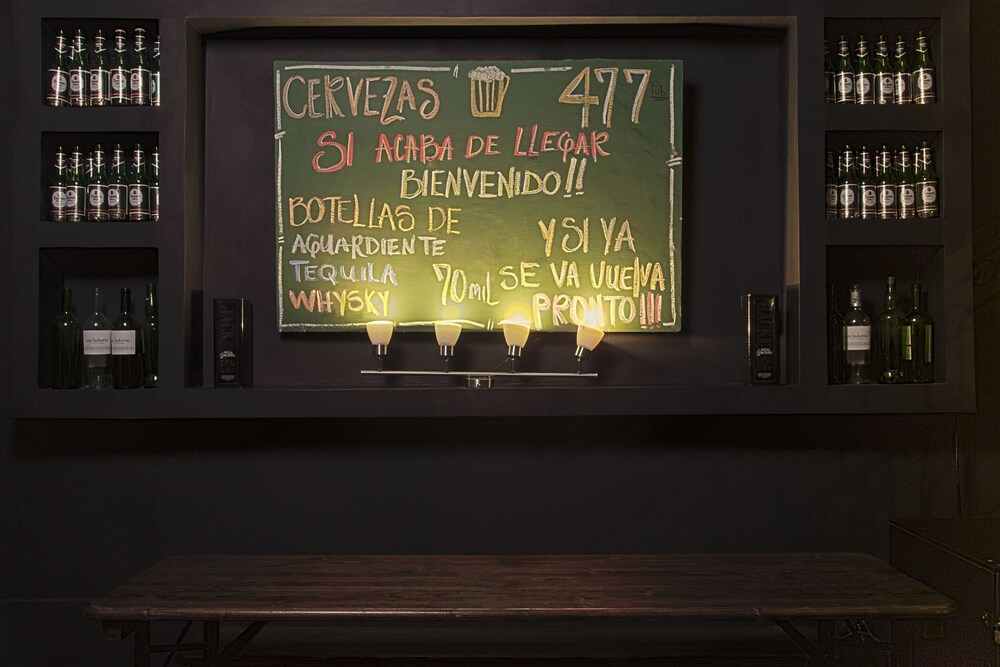 CERVEZAS 477
SI ACABA DE LLEGAR
BIENVENIDO!!
BOTELLAS DE
AGUARDIENTE
TEQUILA
WHYSKY
70mil
Y SI YA
SE VA VUELVA
PRONTO!!!